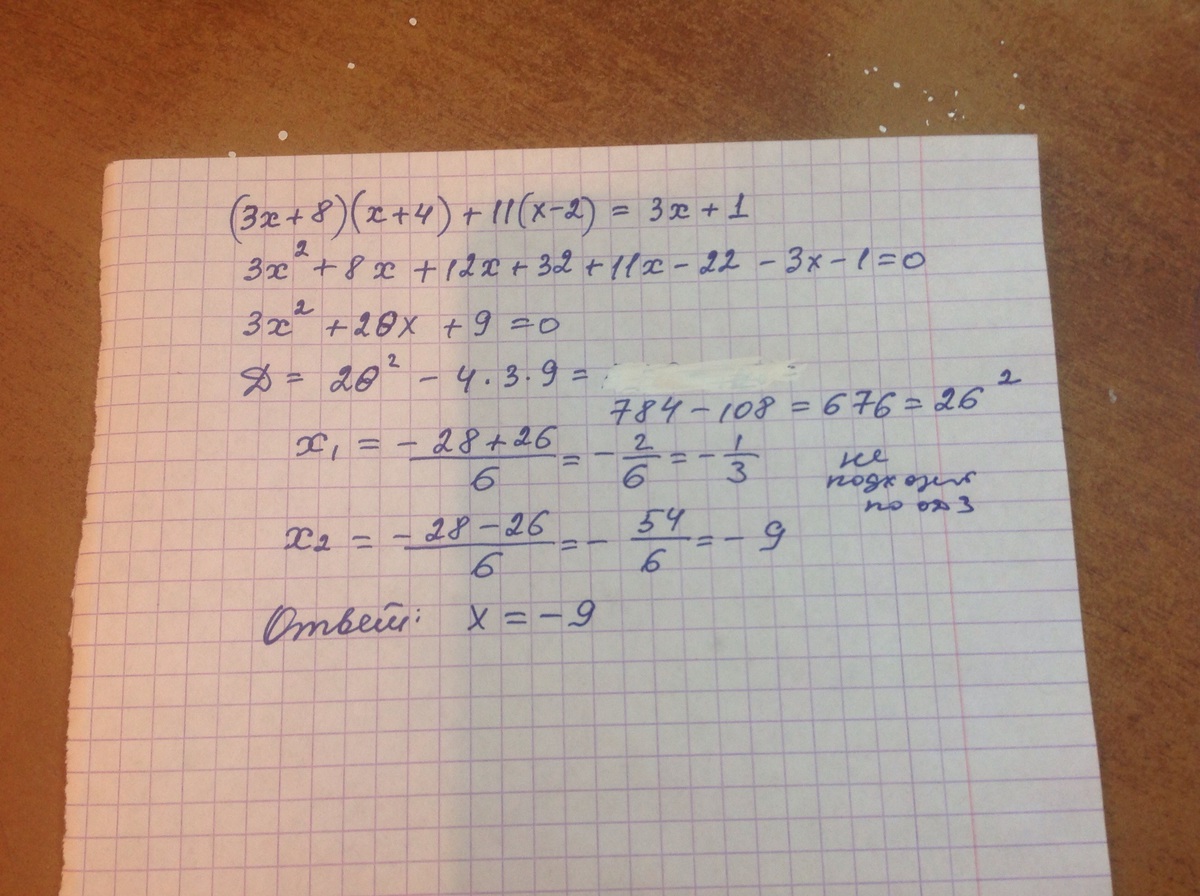 (3x+8)(x+4)+11(x-2) = 3x+1
3x² + 8x + 12x + 32 + 11x - 22 - 3x - 1 = 0
3x² + 28x + 9 = 0
D = 28² - 4·3·9 =
784 - 108 = 676 = 26²
x₁ = (-28+26)/6 = -2/6 = -1/3
не
подходит
по одз
x₂ = (-28-26)/6 = -54/6 = -9
Ответ: x = -9